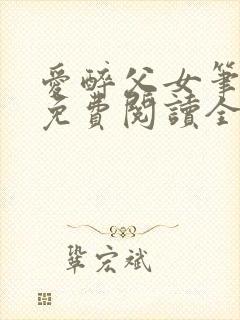 愛醉父女筆
免費閱讀全
鞏宏斌